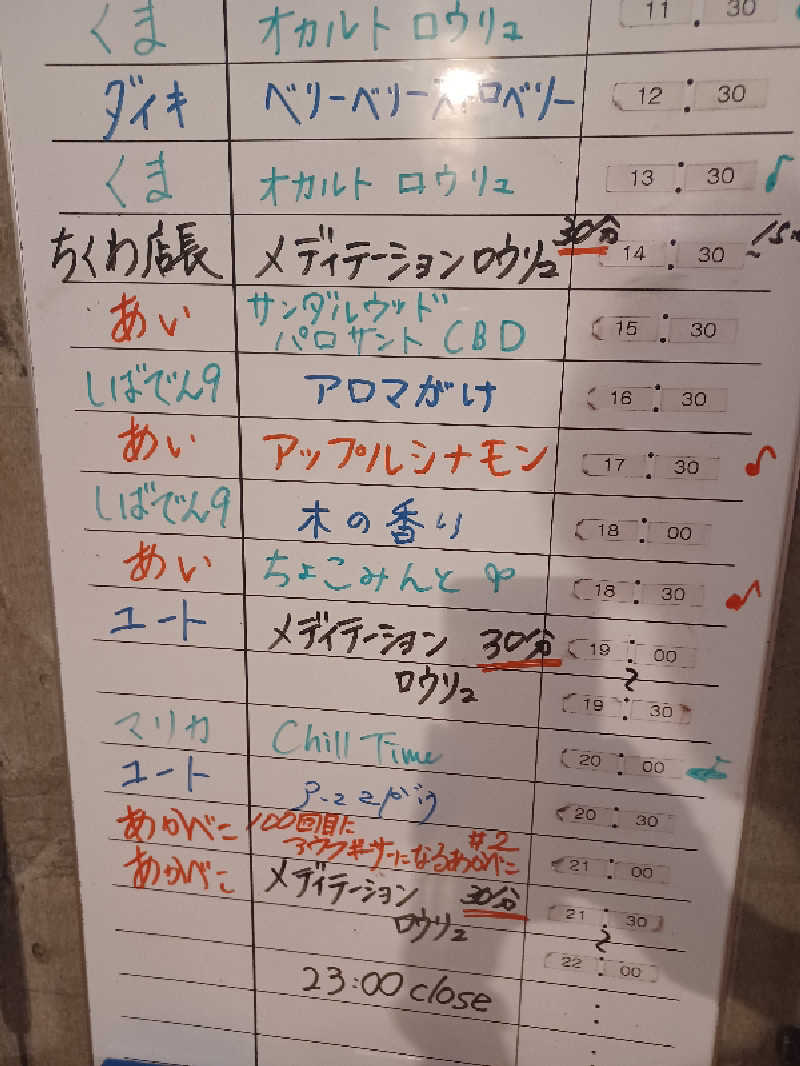 くま オカルト ロウリュ 11:30
ダイキ ベリーベリーストロベリー 12:30
くま オカルト ロウリュ 13:30 ♪
ちくわ店長 メディテーションロウリュ 30分 14:30~
あい サンダルウッド 15:30
パロサント CBD
しばでん9 アロマがけ 16:30
あい アップルシナモン 17:30 ♪
しばでん9 木の香り 18:00
あい ちょこみんと 18:30 ♪
ユート メディテーション 30分 19:00
ロウリュ 〜 19:30
マリカ Chill Time 20:00 ♪
ユート 20:30
あかべこ 100回目に 21:00
アウフギーサーになるあかべこ #2
あかべこ メディテーション 30分 21:30
ロウリュ 〜 22:00
23:00 close